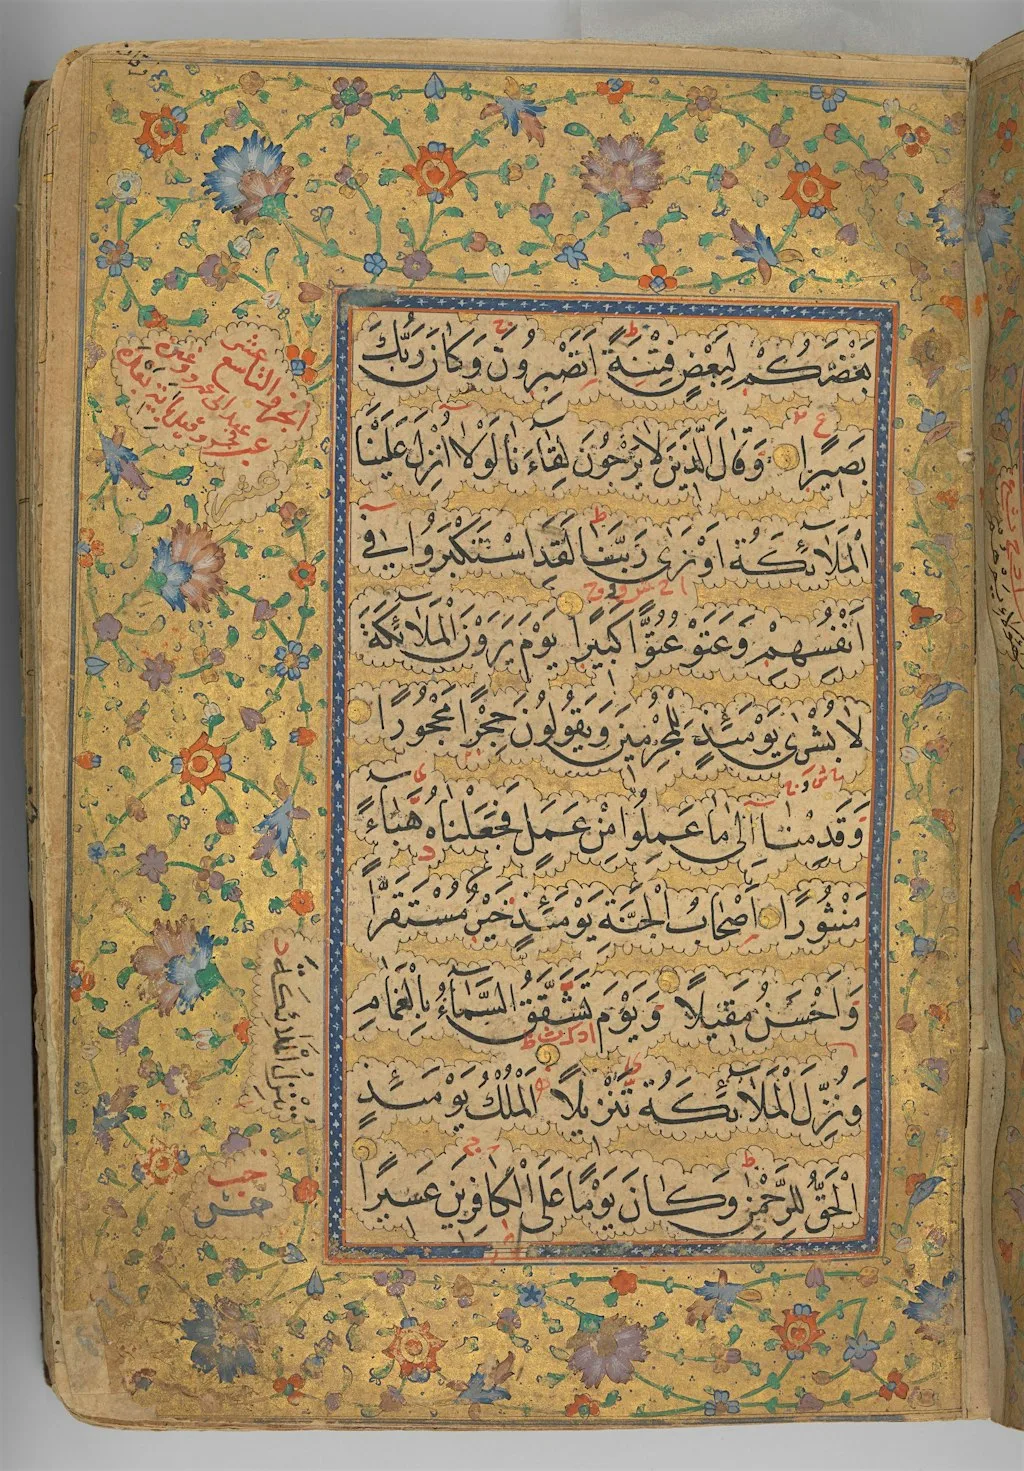 بَعْضَكُمْ لِبَعْضٍ فِتْنَةً اَتَصْبِرُونَ وَكَانَ رَبُّكَ
بَصِيرًا وَقَالَ الَّذِينَ لَا يَرْجُونَ لِقَاءَنَا لَوْلَا اُنْزِلَ عَلَيْنَا
الْمَلَائِكَةُ اَوْ نَرٰى رَبَّنَا لَقَدِ اسْتَكْبَرُوا فِي
اَنْفُسِهِمْ وَعَتَوْ عُتُوًّا كَبِيرًا يَوْمَ يَرَوْنَ الْمَلَائِكَةَ
لَا بُشْرٰى يَوْمَئِذٍ لِلْمُجْرِمِينَ وَيَقُولُونَ حِجْرًا مَحْجُورًا
وَقَدِمْنَا اِلٰى مَا عَمِلُوا مِنْ عَمَلٍ فَجَعَلْنَاهُ هَبَاءً
مَنْثُورًا اَصْحَابُ الْجَنَّةِ يَوْمَئِذٍ خَيْرٌ مُسْتَقَرًّا
وَاَحْسَنُ مَقِيلًا وَيَوْمَ تَشَقَّقُ السَّمَاءُ بِالْغَمَامِ
وَنُزِّلَ الْمَلَائِكَةُ تَنْزِيلًا اَلْمُلْكُ يَوْمَئِذٍ
الْحَقُّ لِلرَّحْمٰنِ وَكَانَ يَوْمًا عَلَى الْكَافِرِينَ عَسِيرًا
الجزو التاسع عشر
عشر
نُنْزِلُ الْمَلَائِكَةَ
حب